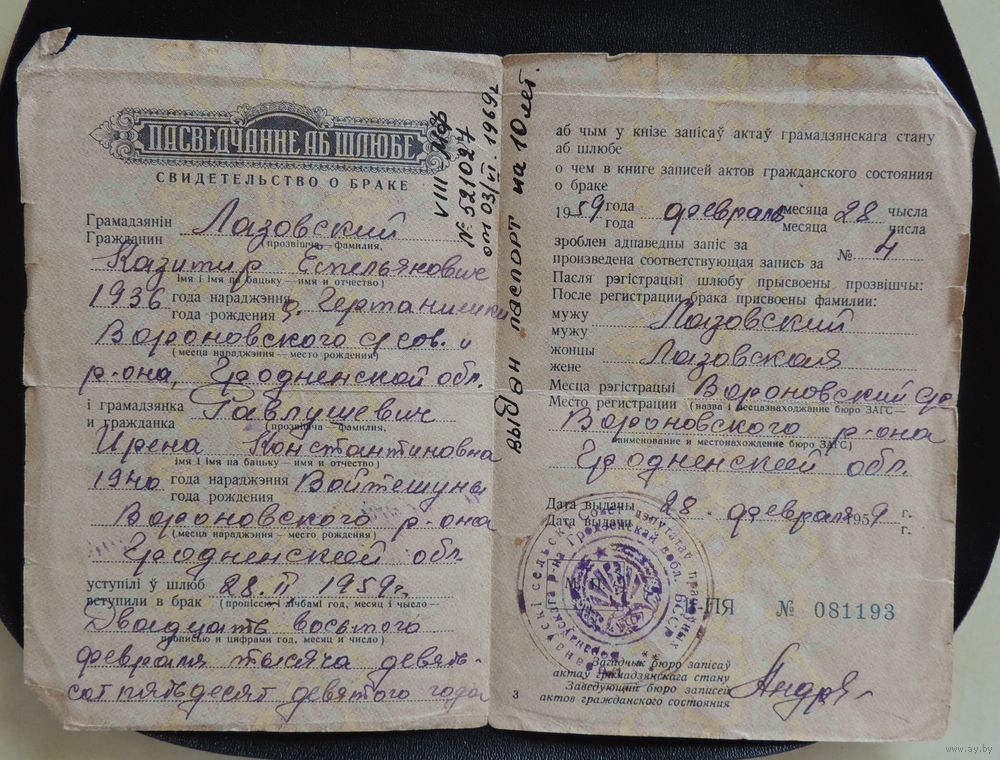 ПАСВЕДЧАННЕ АБ ШЛЮБЕ
СВИДЕТЕЛЬСТВО О БРАКЕ
Грамадзянін
Гражданин
Лазовский
(прозвішча—фамилия,
Казимир Емельянович
імя і імя па бацьку—имя и отчество)
1936 года нараджэння
года рождения
д. Гертанишки
Вороновского с/сов. и
(месца нараджэння—место рождения)
р-она, Гродненской обл.
і грамадзянка
и гражданка
Павлушевич
(прозвішча—фамилия,
Ирена Константиновна
імя і імя па бацьку—имя и отчество)
1940 года нараджэння
года рождения
Войтешуны
Вороновского р-она
(месца нараджэння—место рождения)
Гродненской обл.
уступілі ў шлюб
вступили в брак
28.II. 1959г.
(пропіссю і лічбамі год, месяц і чысло—
Двадцать восьмого
прописью и цифрами год, месяц и число)
февраля тысяча девять-
сот пятьдесят девятого года
VIII МФ
№ 521027
от 03/VI. 1969г
выдан паспорт на 10 лет.
аб чым у кнізе запісаў актаў грамадзянскага стану
аб шлюбе
о чем в книге записей актов гражданского состояния
о браке
1959 года
года
февраль месяца
месяца
28 чысла
числа
зроблен адпаведны запіс за
произведена соответствующая запись за
№ 4
Пасля рэгістрацыі шлюбу прысвоены прозвішчы:
После регистрации брака присвоены фамилии:
мужу
мужу
Лазовский
жонцы
жене
Лазовская
Месца рэгістрацыі
Место регистрации
Вороновский с/с
(назва і месцазнаходжанне бюро ЗАГС—
Вороновского р-она
наименование и местонахождение бюро ЗАГС)
Гродненской обл.
Дата выдачы
Дата выдачи
28. февраля 1959 г.
г.
М. П.
-ПЯ № 081193
Загадчык бюро запісаў
актаў грамадзянскага стану
Заведующий бюро записей
актов гражданского состояния
3
www.ay.by